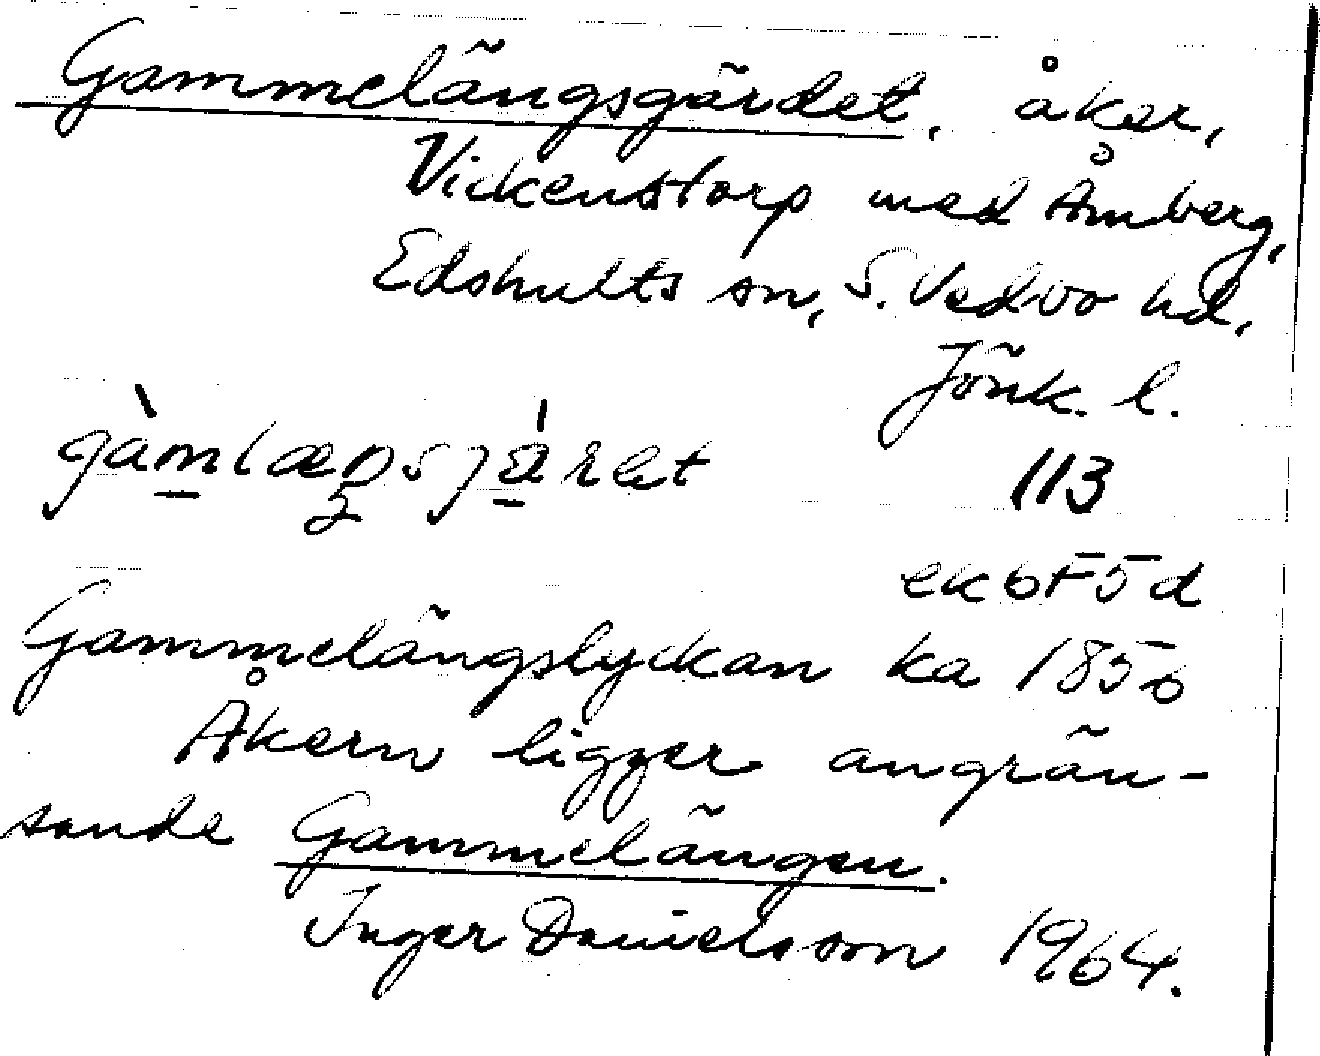 Gammelängsgärdet, åker,
Vickenstorp med Åmberg,
Edshults sn, S. Vedbo hd,
Jönk. l.
gàmlæŋsjä̀rlet 113
ek 6F5d
Gammelängslyckan ka 1856
Åkern ligger angrän-
sande Gammelängen.
Inger Danielsson 1964.